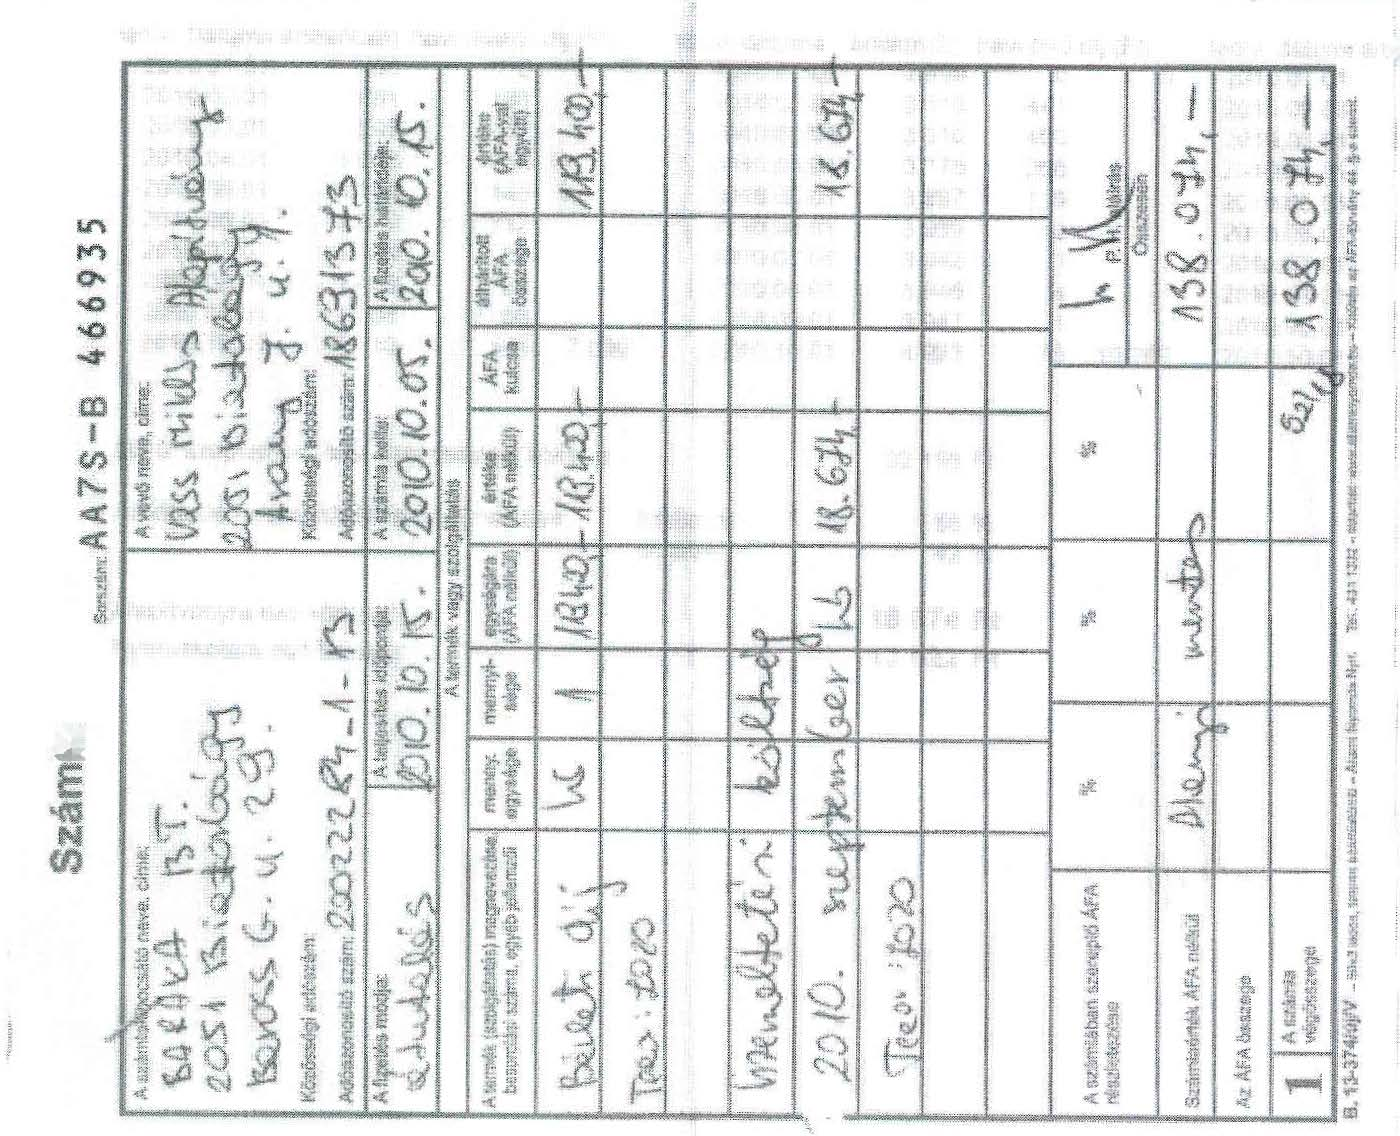 Számla
Sorszám: AA7S-B 466935
A számlakibocsátó neve, címe:
BARAKA BT.
2051 Biatorbágy
Baross G. u. 29.
Közösségi adószám:
Adóazonosító szám: 20022284-1-13
A vevő neve, címe:
Vass Miklós Alapítvány
2051 Biatorbágy
Arany J. u. 7.
Közösségi adószám:
Adóazonosító szám: 18631373
A fizetés módja:
átutalás
A teljesítés időpontja:
2010. 10. 15.
A számla kelte:
2010.10.05.
A fizetés határideje:
2010. 10. 15.
A termék vagy szolgáltatás
A termék (szolgáltatás) megnevezése, besorolási száma, egyéb jellemzői
menny. egysége
mennyi-sége
egységára (ÁFA nélkül)
értéke (ÁFA nélkül)
ÁFA kulcsa
áthárított ÁFA összege
értéke (ÁFA-val együtt)
Bérleti díj
1
Üzemeltetési költség
2010. szeptember hó 18.674,- 18.674,-
A számlában szereplő ÁFA részletezése
%
%
%
P.H. aláírás
Összesen
Számlaérték ÁFA nélkül
Alanyi mentes
138.074,—
Az ÁFA összege
1
A számla végösszege
138.074,—
B. 13-374/V